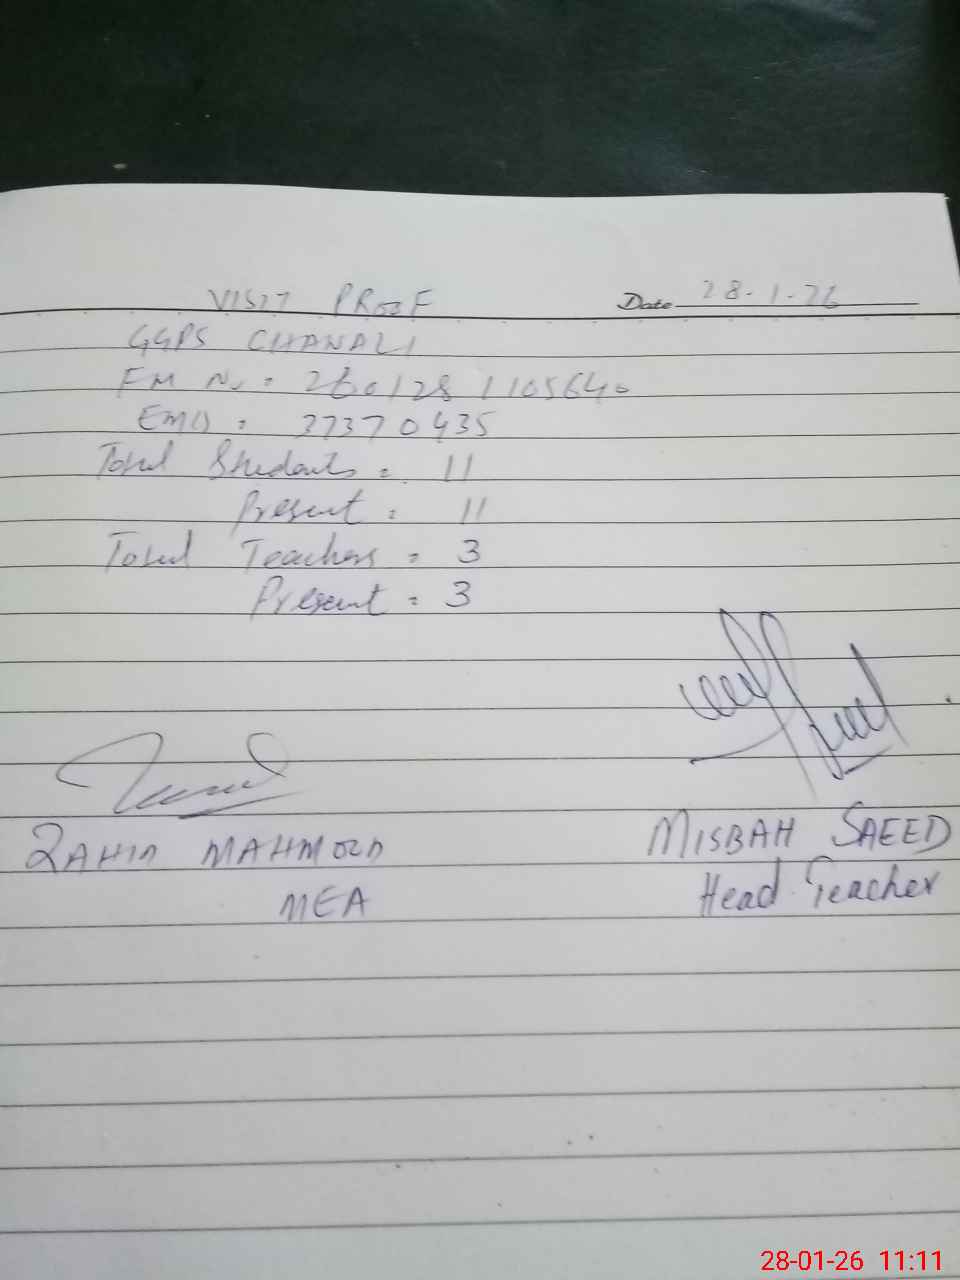 VISIT PROOF
Date 28-1-26
GGPS CHANALI
FM No = 260128 1105640
EMIS = 37370435
Total Students = 11
Present = 11
Total Teachers = 3
Present = 3
MISBAH SAEED
Head Teacher
ZAHID MAHMOOD
MEA
28-01-26 11:11